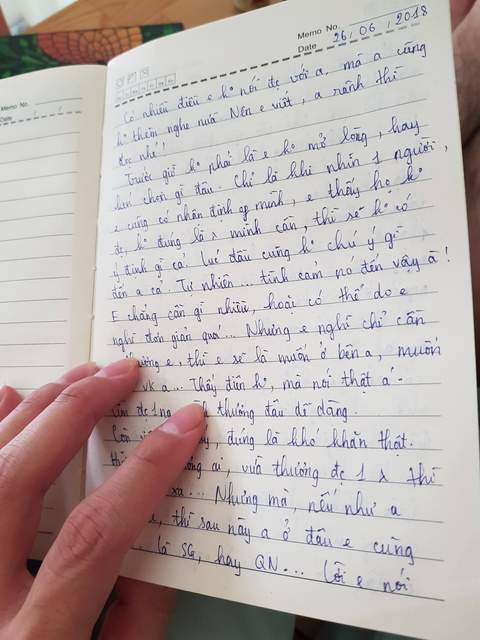 Memo No.
Date 26 / 06 / 2018
Memo No.
Date / /
Có nhiều điều e ko nói đc với a, mà a cũng
ko thèm nghe nữa. Nên e viết, a rảnh thì
đọc nhé!
Trước giờ ko phải là e ko mở lòng, hay
kén chọn gì đâu. Chỉ là khi nhìn 1 người,
e cũng có nhận định of mình, e thấy họ ko
đc, ko đúng là x mình cần, thì sẽ ko có
ý định gì cả. Lúc đầu cũng ko chú ý gì
đến a cả. Tự nhiên... tình cảm nó đến vậy à!
E chẳng cần gì nhiều, hoặc có thể do e
nghĩ đơn giản quá... Nhưng e nghĩ chỉ cần
thương e, thì e sẽ là muốn ở bên a, muốn
vk a... Thấy điên ko, mà nói thật á -
tìm đc 1 ng thương đâu dễ dàng.
Còn đúng là khó khăn thật.
ai, vừa thương đc 1 x thì
xa... Nhưng mà, nếu như a
thì sau này a ở đâu e cũng
là SG, hay QN... Lời e nói